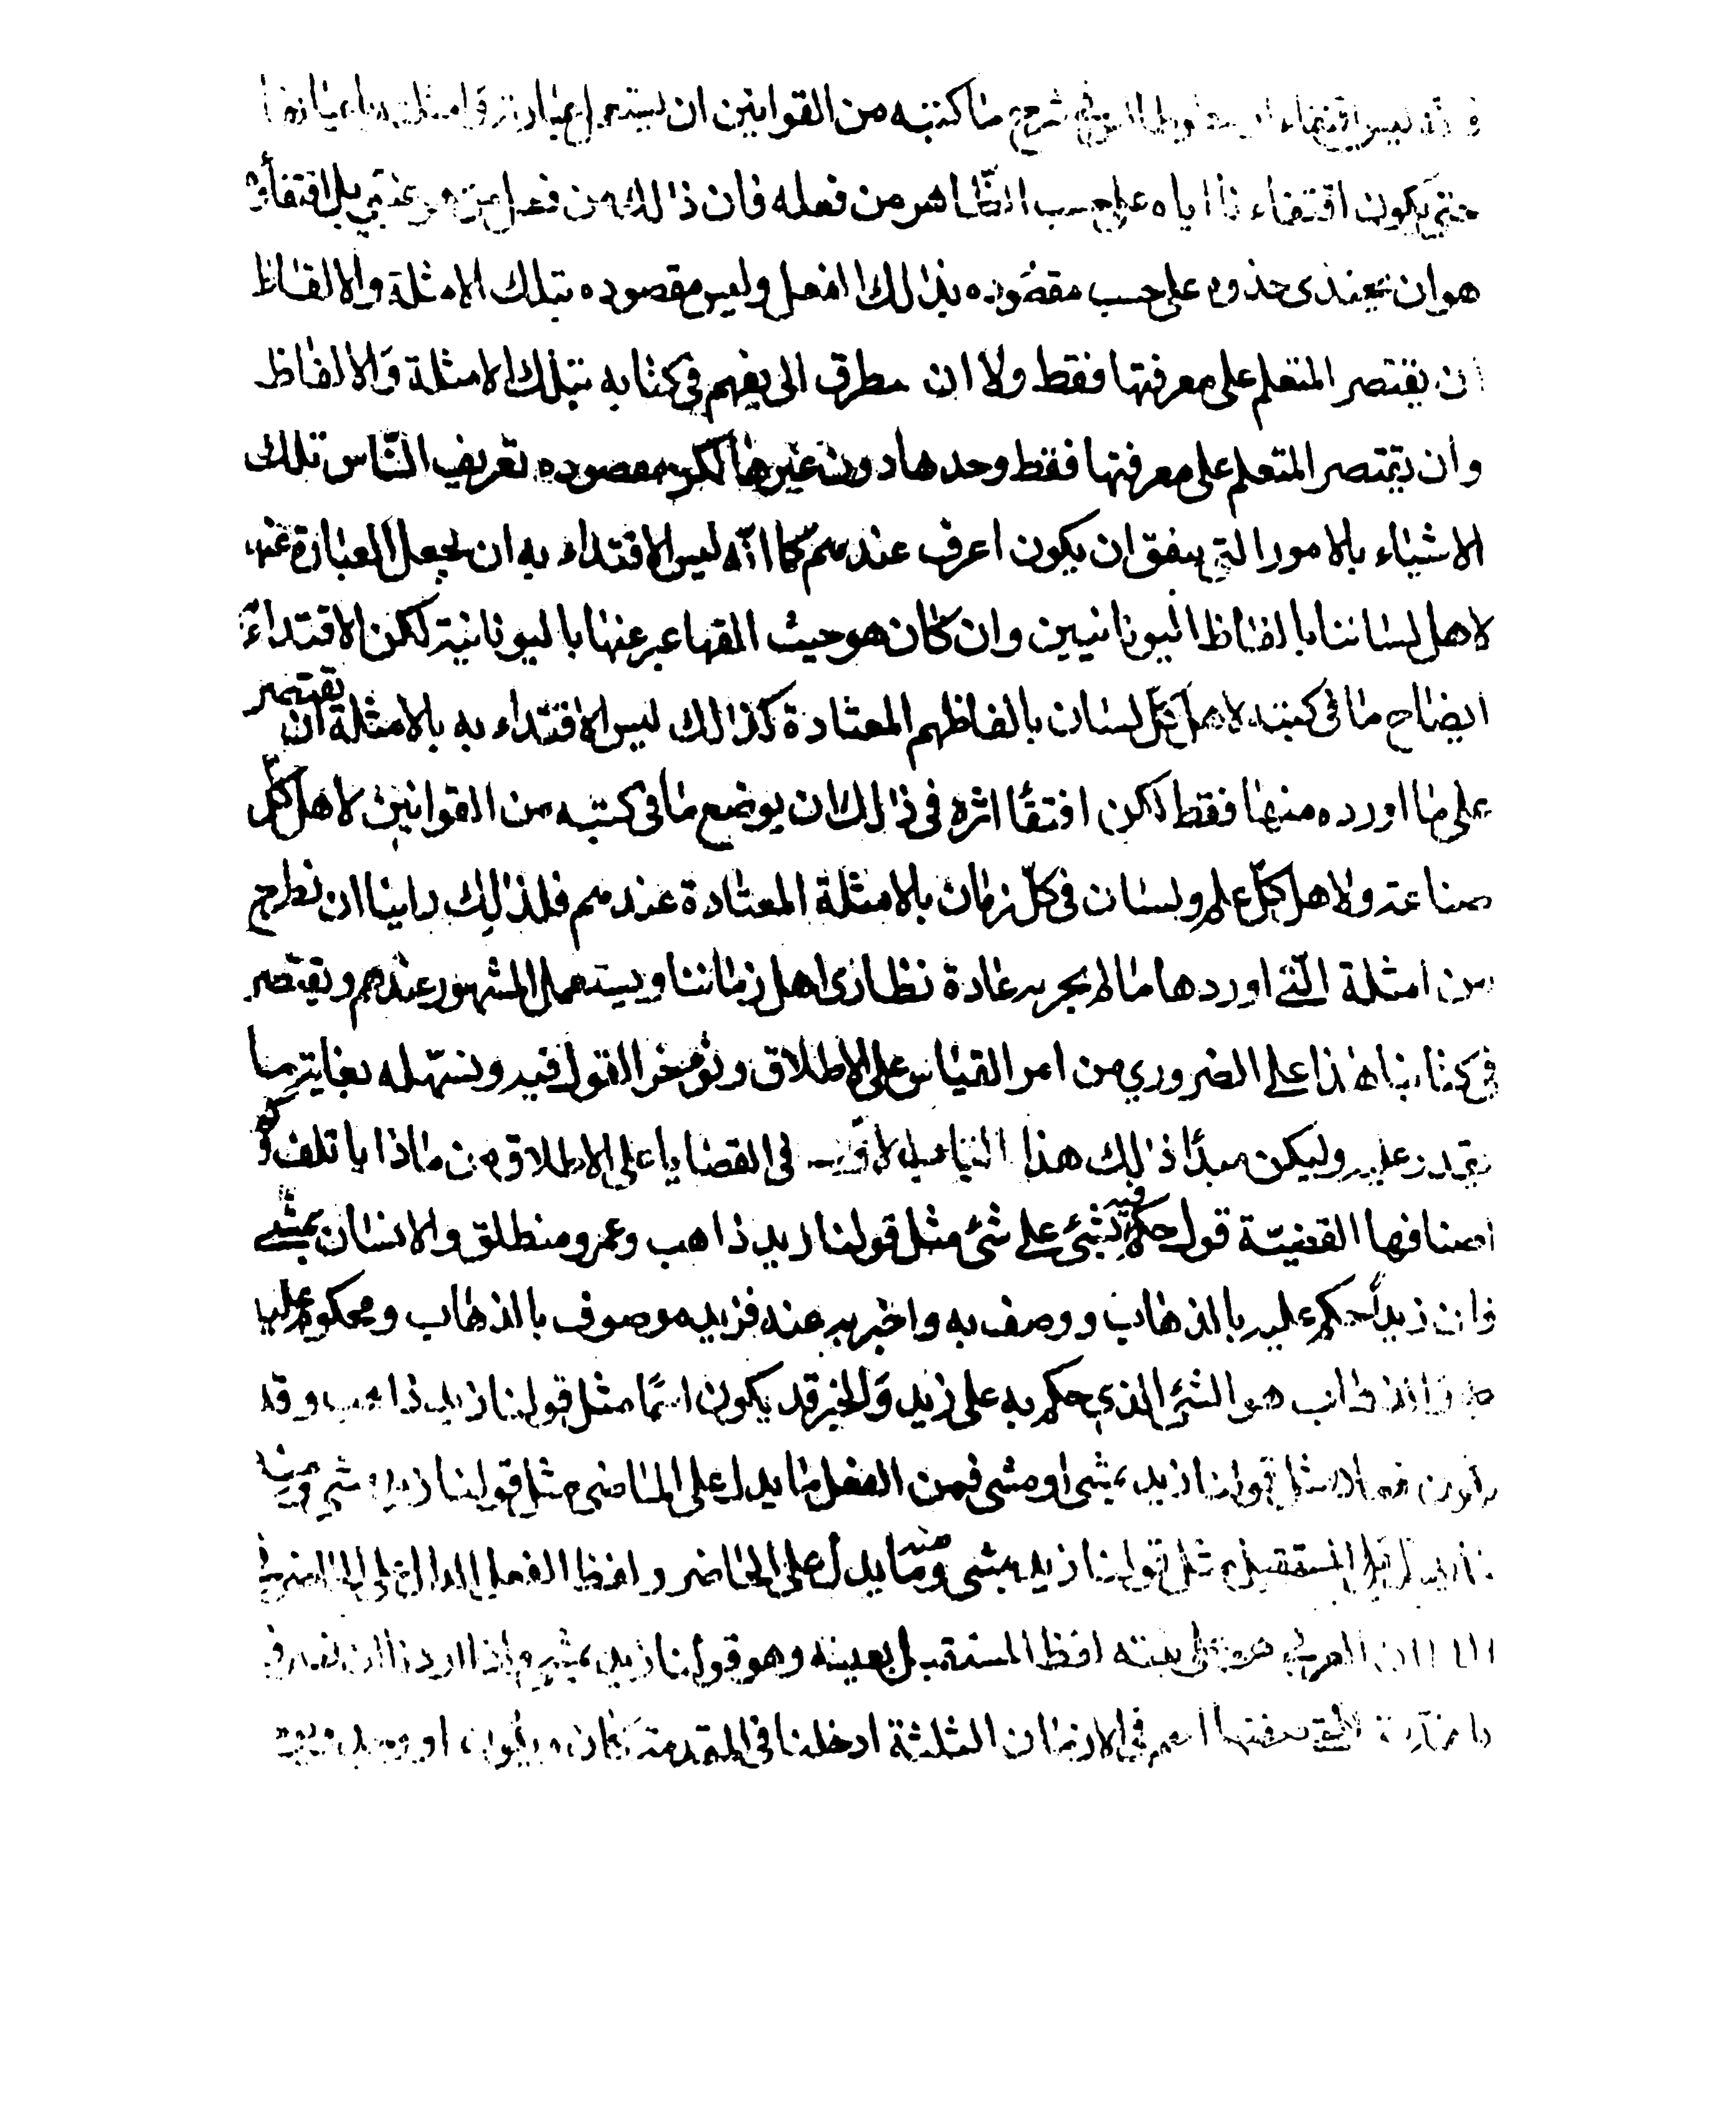 ليس اقتفاء شرح ما كتبه من القوانين ان يستعمل عبارته وامثلته باعيانها
حتى يكون اقتفاءنا اياه على حسب الظاهر من فعله فان ذالك من فعل من هو غبي بل اقتفاؤه
هو ان يحتذى حذوه على حسب مقصوده بذالك الفعل وليس مقصوده بتلك الامثلة والالفاظ
ان يقتصر المتعلم على معرفتها فقط ولا ان مطرق الى يفهم فى كتابه بتلك الامثلة والالفاظ
وان يقتصر المتعلم على معرفتها فقط وحدها دون غيرها لكن مقصوده تعريف الناس تلك
الاشياء بالامور التي يتفق ان يكون اعرف عندهم كما انّه ليس الاقتداء به ان نجعل العبارة عنها
لاهل لساننا بالفاظ اليونانيين وان كان هو حيث القها عبر عنها باليونانية لكن الاقتداء
ايضاح ما فى كتبه لاهل كل لسان بالفاظهم المعتادة كذالك ليس الاقتداء به بالامثلة ان يقتصر
على ما اورده منها فقط لكن اقتفا اثره فى ذالك ان يوضع ما فى كتبه من القوانين لاهل كلّ
صناعة ولاهل كلّ علم ولسان فى كلّ زمان بالامثلة المعتادة عندهم فلذالك راينا ان نطرح
من امثلة الّتي اوردها ما لم يجر به عادة نظارى اهل زماننا ويستعمل المشهور عندهم ونقتصر
فى كتابنا هذا على الضروري من امر القياس على الاطلاق ونؤخر القول فيه ونسهّله بغاية ما
يقدر عليه وليكن مبدأ ذالك هذا القياس فى القضايا على الاطلاق من ماذا ياتلف وكم
اصنافها القضيّة قول حكم فيه بشئ على شئ مثل قولنا زيد ذاهب وعمرو منطلق والانسان يمشي
فان زيداً حكم عليه بالذهاب ووصف به واخبر به عنه فزيد موصوف بالذهاب ومحكوم عليه
هو الشئ الذي حكم به على زيد والخبر قد يكون اسمًا مثل قولنا زيد ذاهب وقد
يكون فعلا مثل قولنا زيد يمشى او مشى فمن الفعل ما يدل على الماضى مثل قولنا زيد مشى ومنه
ما يدل على المستقبل مثل قولنا زيد يمشى ومنه ما يدل على الحاضر ولفظ الفعل الدال على الحاضر في
اللسان العربي هو لفظ المستقبل بعينه وهو قولنا زيد يمشي واذا اردنا ان نفرق
فى الازمان الثلثة ادخلنا فى المقدمة كان او يكون او